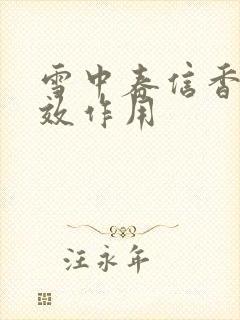 雪中春信香
效作用
汪永年